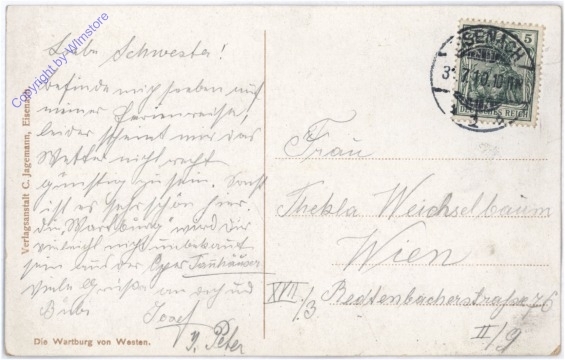 Copyright by Wlmstore
Verlagsanstalt C. Jagemann, Eisenach
Liebe Schwester!
Befinde mich soeben auf
meiner Ferienreise,
leider scheint mir das
Wetter nicht recht
günstig zu sein. Sonst
ist es sehr schön hier
die „Wartburg" wird Dir
vieleicht nicht unbekannt
sein aus der Oper Tanhäuser
Viele Grüße an dich und
Bubi Josef
Peter
Die Wartburg von Westen.
EISENACH
5
31.7.10.10
2
DEUTSCHES REICH
Frau
Thekla Weichselbaum
Wien
XVII/3 Redtenbacherstraße 76
II/9